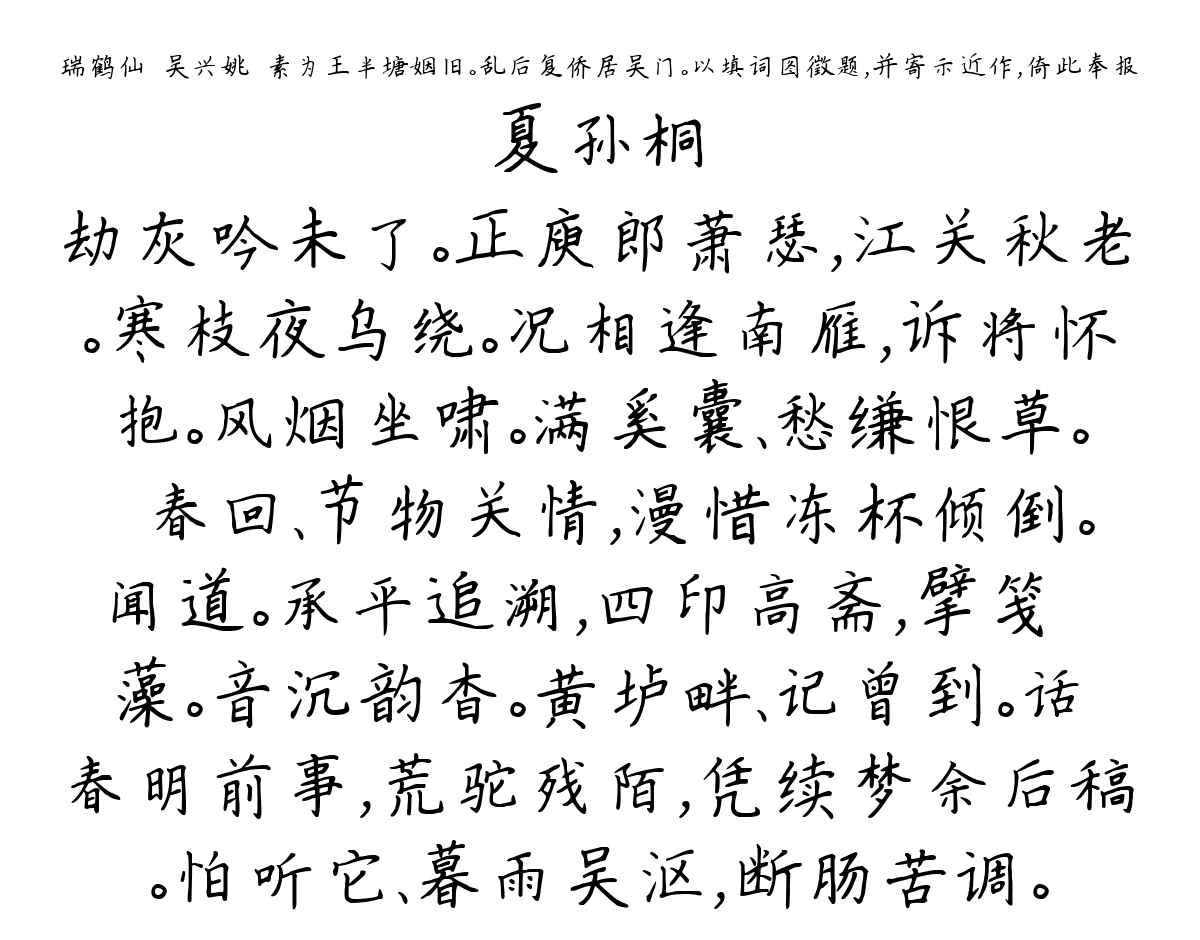 瑞鹤仙 吴兴姚 素为王半塘姻旧。乱后复侨居吴门。以填词图徵题,并寄示近作,倚此奉报
夏孙桐
劫灰吟未了。正庾郎萧瑟,江关秋老
。寒枝夜乌绕。况相逢南雁,诉将怀
抱。风烟坐啸。满奚囊、愁缣恨草。
春回、节物关情,漫惜冻杯倾倒。
闻道。承平追溯,四印高斋,擘笺
藻。音沉韵杳。黄垆畔、记曾到。话
春明前事,荒驼残陌,凭续梦余后稿
。怕听它、暮雨吴沤,断肠苦调。